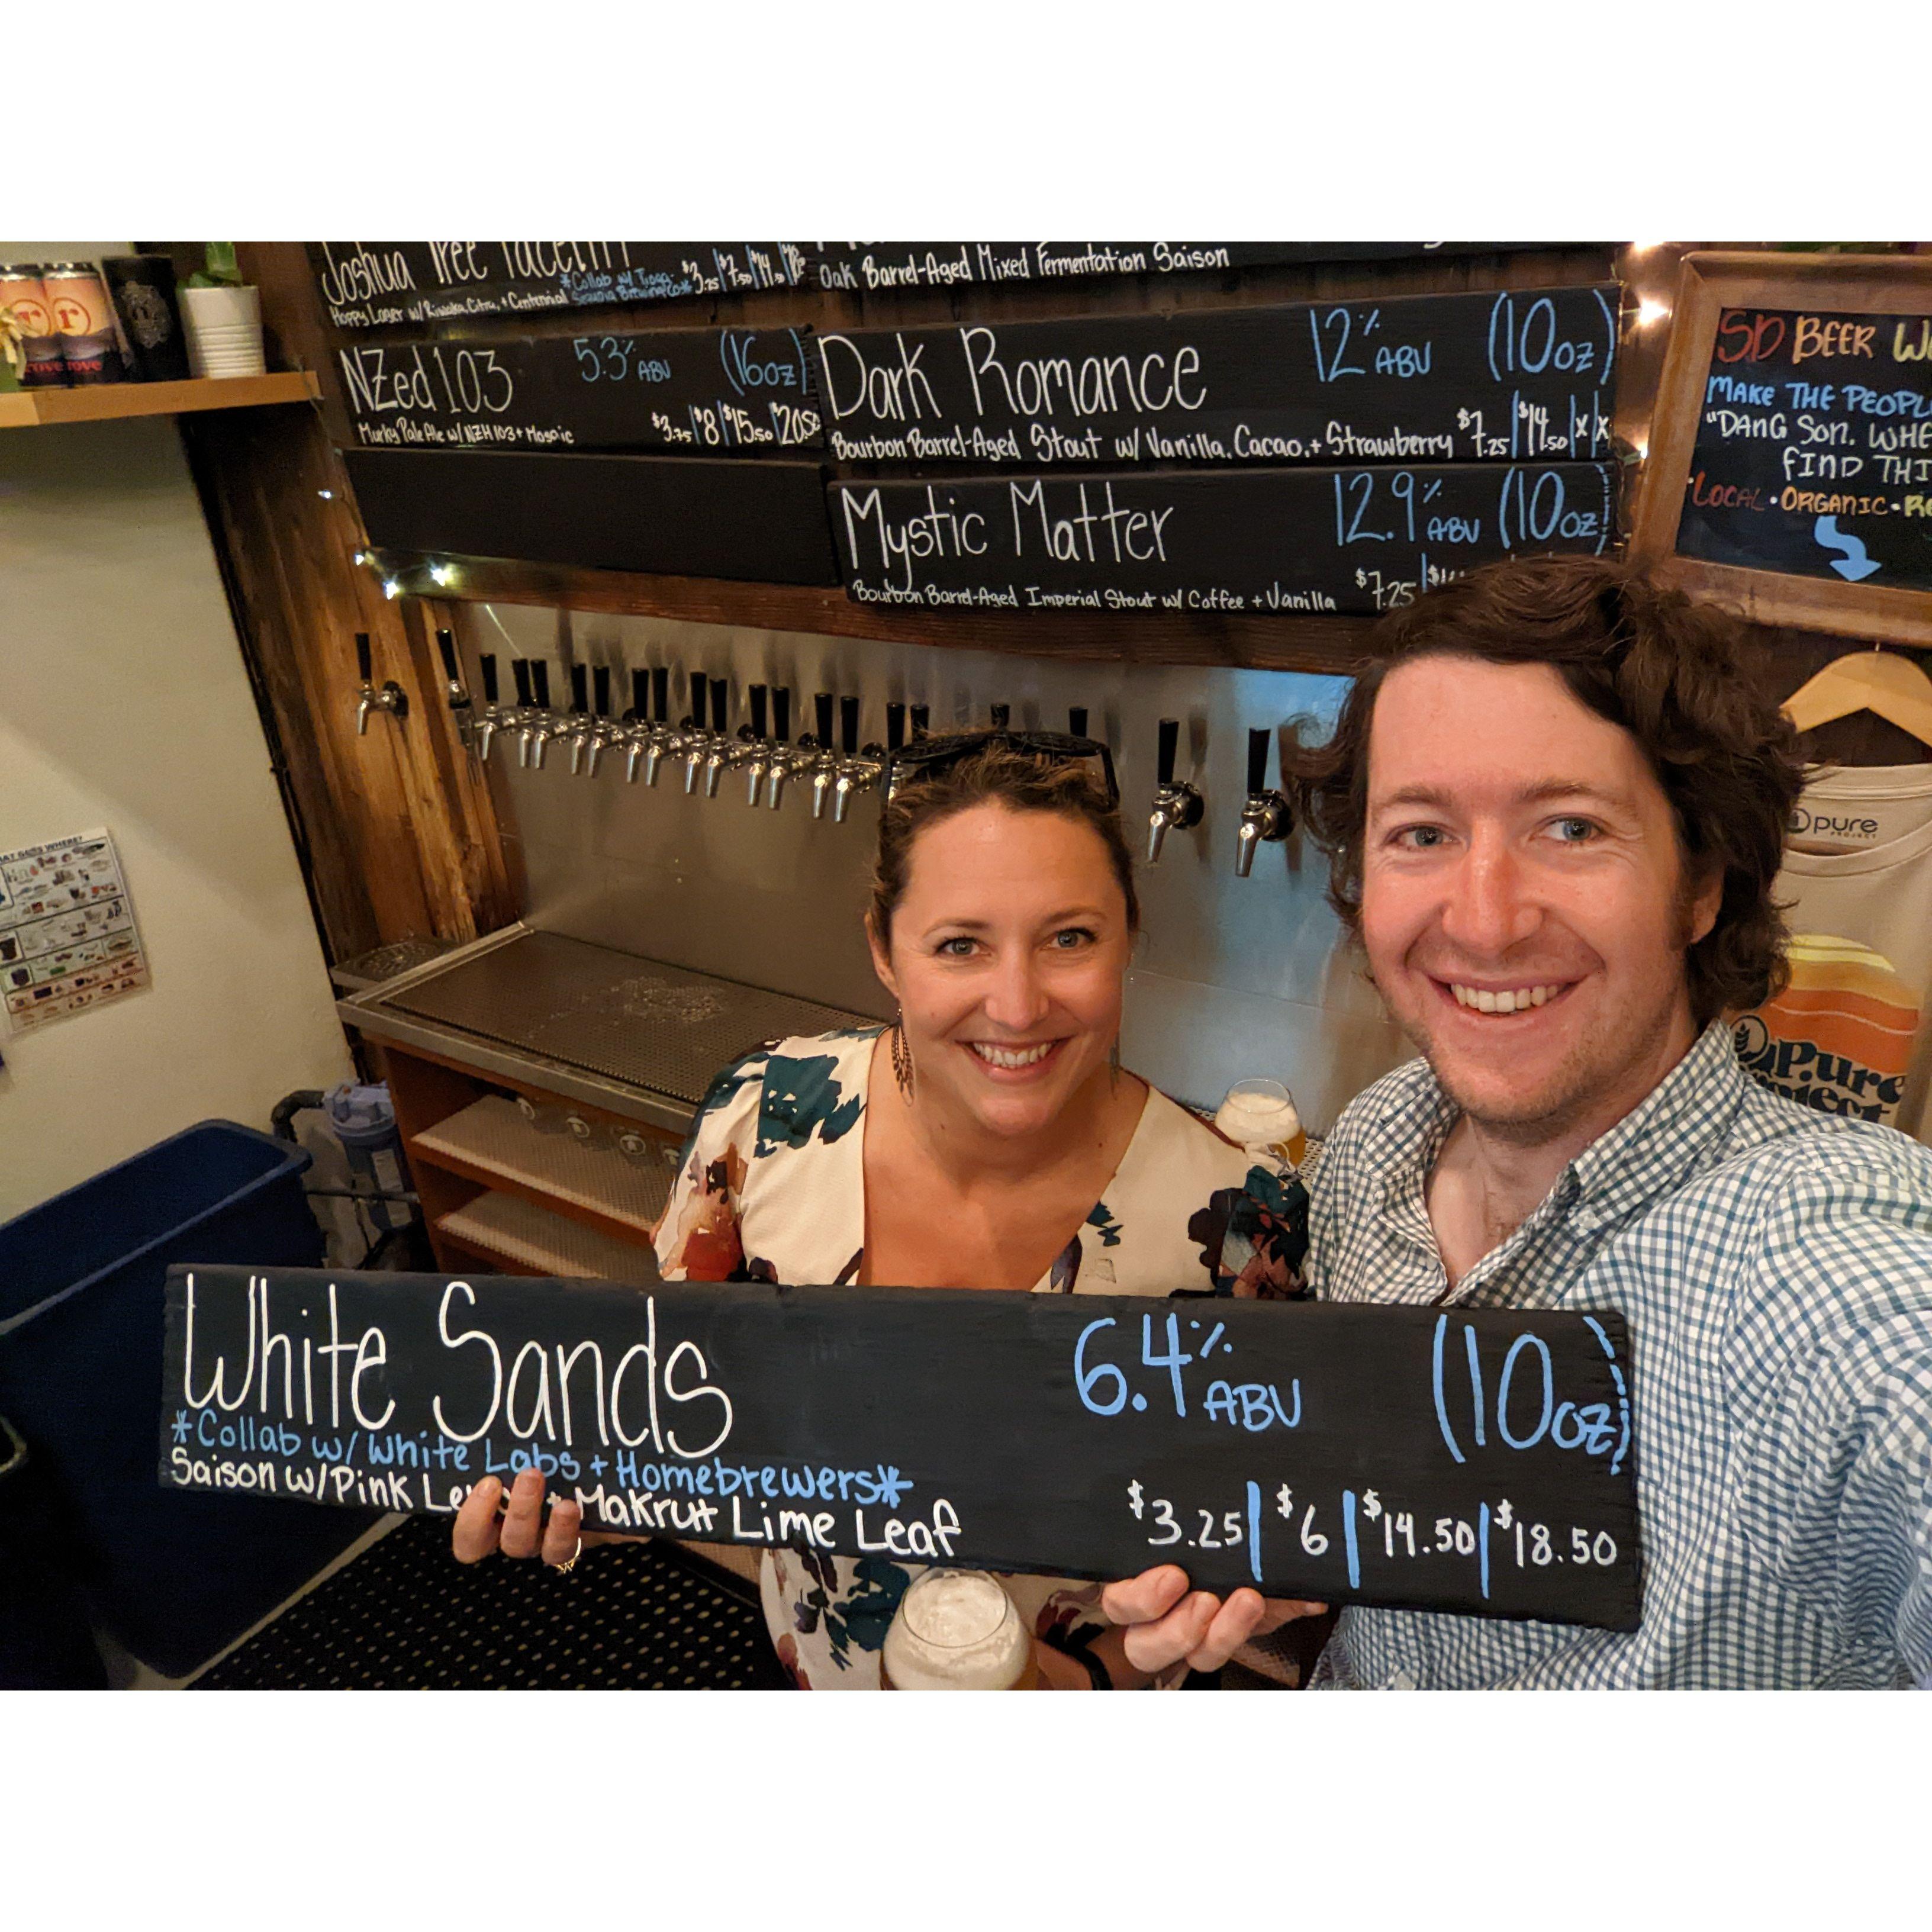 Joshua Tree
*Collab w/ Tioga-
Hoppy Lager w/ Riwaka, Citra, + Centennial Sequoia Brewing Co*
$3.25|$7.50|$14.
Oak Barrel-Aged Mixed Fermentation Saison
NZed 103 5.3% ABV (16oz)
Murky Pale Ale w/ NZH103 + Mosaic $3.75|$8|$15.50|$20.50
Dark Romance 12% ABV (10oz)
Bourbon Barrel-Aged Stout w/ Vanilla, Cacao, + Strawberry $7.25|$14.50|x|x
Mystic Matter 12.9% ABV (10oz)
Bourbon Barrel-Aged Imperial Stout w/ Coffee + Vanilla $7.25
SD BEER
MAKE THE PEOPL
"DANG SON. WHE
FIND THI
LOCAL • ORGANIC •
r
r
pure
PROJECT
Pure
White Sands 6.4% ABV (10oz)
*Collab w/ White Labs + Homebrewers*
Saison w/ Pink Makrut Lime Leaf
$3.25|$6|$14.50|$18.50